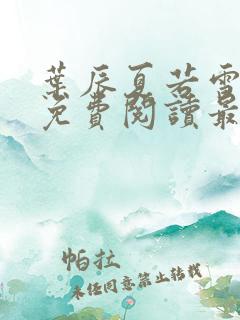 葉辰夏若雪
免費閱讀最
帕拉
未经同意禁止转载